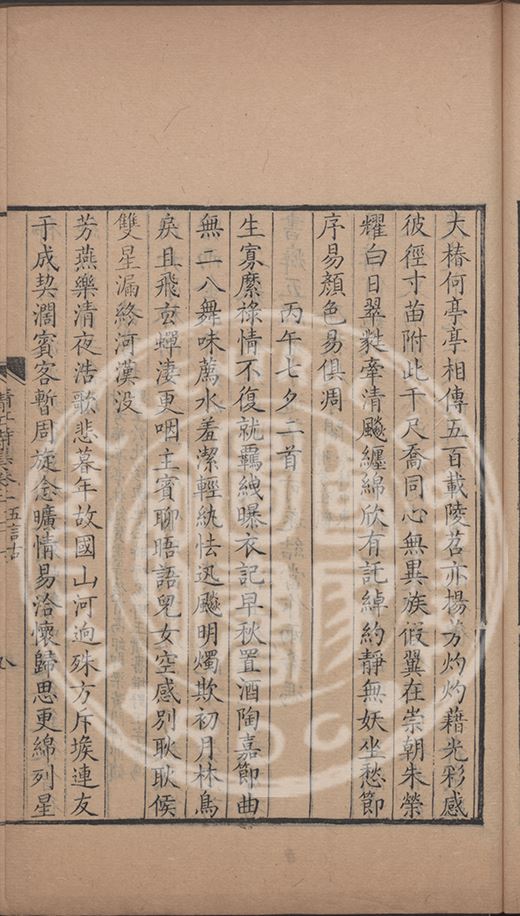 大椿何亭亭相傳五百載陵苕亦揚芳灼灼藉光彩感
彼徑寸苗附此千尺喬同心無異族假翼在崇朝朱榮
耀白日翠蕤牽清飈纏綿欣有託綽約靜無妖坐愁節
序易顏色易俱凋
丙午七夕二首
生寡縻祿情不復就羈絏曝衣記早秋置酒陶嘉節曲
無二八舞味薦水羞潔輕紈怯迅飈明燭欺初月林鳥
戾且飛玄蟬淒更咽主賓聊晤語兒女空感別耿耿候
雙星漏終河漢没
芳燕樂清夜浩歌悲暮年故國山河逈殊方斥堠連友
于成契濶賓客暫周旋念曠情易洽懷歸思更綿列星
五言古
八